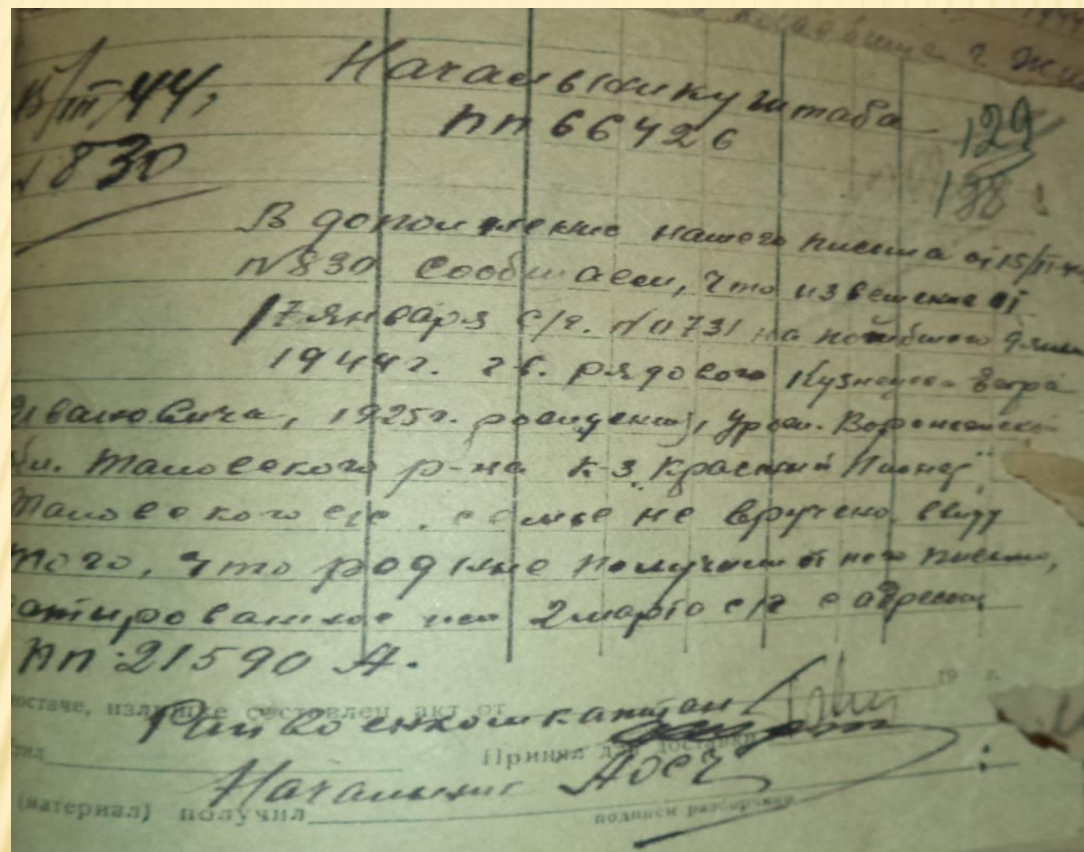 Начальнику штаба
15/III-44,
пп 66426
129
№830
188
В дополнение нашего письма от 15/III-44
№830 сообщаем, что извещение от
17 января с/г. №0731 на погибшего
1944г. гв. рядового Кузнецова Петра
Ивановича, 1925г. рождения, урож. Воронежской
обл. Таловского р-на к-з "Красный Пионер",
Таловского с/с. семье не вручено ввиду
того, что родные получили от него письмо,
датированное 2 марта с/г с адресом
пп 21590 А.
19 г.
остаче, излишке составлен акт от
Райвоенком капитан
Принял для доставки
Начальник
(материал) получил
подписи разборчиво